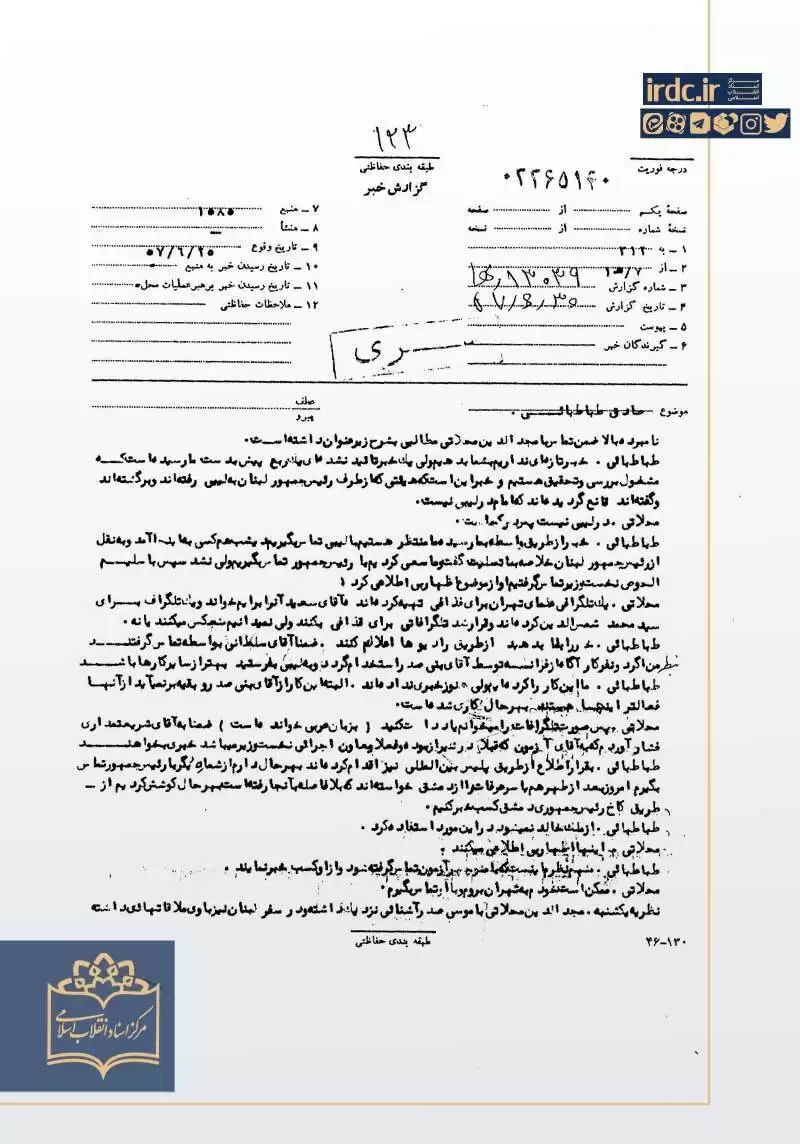 irdc.ir
مرکز اسناد انقلاب اسلامی
۱۲۳
طبقه بندی حفاظتی
گزارش خبر
درجه فوریت
۰۲۲۶۵۱۴۰
صفحهٔ یکم از صفحه
نسخهٔ شماره از نسخه
۱ ـ به ۳۱۲
۲ ـ از
۳ ـ شماره گزارش
۴ ـ تاریخ گزارش
۵ ـ پیوست
۶ ـ گیرندگان خبر
۷ ـ منبع ۱۰۸۵
۸ ـ منشأ
۹ ـ تاریخ وقوع ۵۷/۶/۲۵
۱۰ ـ تاریخ رسیدن خبر به منبع
۱۱ ـ تاریخ رسیدن خبر برهبر عملیات محل
۱۲ ـ ملاحظات حفاظتی
سری
موضوع صادق طباطبائی .
عطف
پیرو
نامبرده بالا ضمن تماس با مجد الدین محلاتی مطالبی بشرح زیر عنوان داشته است.
طباطبائی . خبر تازه‌ای نداریم بشما بدهیم ولی یک خبر تائید نشده‌ای یک ربع پیش بدست ما رسیده است که
مشغول بررسی و تحقیق هستیم و خبر این است که هیئتی که از طرف رئیس جمهور لبنان به لیبی رفته‌اند و برگشته‌اند
و گفته‌اند قانع گردیده‌اند که امام در لیبی نیست.
محلاتی . در لیبی نیست پس در کجا است.
طباطبائی . خبر از طریق واسطه بما رسیده ما منتظر هستیم با لیبی تماس بگیریم دیشب هم کسی به اینجا آمد و به نقل
از رئیس جمهور لبنان خلاصه بما تسلیت گفت و ما سعی کردیم با رئیس جمهور تماس بگیریم ولی نشد سپس با سلیم
الحوص نخست وزیر تماس گرفتیم او از موضوع اظهار بی اطلاعی کرد !
محلاتی . یک تلگرافی علمای تهران برای قذافی تهیه کرده‌اند که آقای سعید آنرا برایم خواند و یک تلگراف برای
سید محمد شمس الدین کرده‌اند و قرار شد تلگرافاتی برای قذافی بکنند ولی نمیدانیم منعکس میکنند یا نه .
طباطبائی . خبر را بما بدهید از طریق رادیوها اعلام کنند . ضمنا آقای سلطانی بواسطه تماس گرفتند
نظر من اگر دو نفر کار آگاه از فرانسه توسط آقای بنی صدر استخدام گردد و به لیبی بفرستید بهتر از سایر کارها باشد
طباطبائی . ما این کار را کرده‌ایم ولی هنوز خبری نداده‌اند . البته این کار از آقای بنی صدر و بقیه بر نمیآید از آنها
فعالتر اینها هستند بهر حال کاری شده است.
محلاتی . پس صورت تلگرافات را میخوانم یادداشت کنید ( بزبان عربی خوانده است ) ضمنا به آقای شریعتمداری
فشار آوردم که به آقای آزمون که قبلا وزیر بود و فعلا معاون اجرائی نخست وزیر میباشد خبری بخواهند
طباطبائی . بقرار اطلاع از طریق پلیس بین المللی نیز اقدام کرده‌اند بهر حال
بگیرم امروز بعد از ظهر هم با سرعرفات از دمشق خواسته‌اند که بلا فاصله به آنجا رفته است بهر حال کوشش کردیم از ـ
طریق کاخ رئیس جمهوری دمشق کسب خبر کنیم .
طباطبائی . از ملک خالد نمیشود در این مورد استفاده کرد .
محلاتی . اینها اظهار بی اطلاعی میکنند .
طباطبائی . منهم نظرم اینست که با منوچهر آزمون تماس گرفته شود و از او کسب خبر نمایند .
محلاتی . ممکن است خودم به تهران بروم و با او تماس بگیرم.
نظریه یکشنبه . مجد الدین محلاتی با موسی صدر آشنائی نزدیک داشته و در سفر لبنان نیز با وی ملاقاتهائی داشته
طبقه بندی حفاظتی
۴۶-۱۳۰
مرکز اسناد انقلاب اسلامی